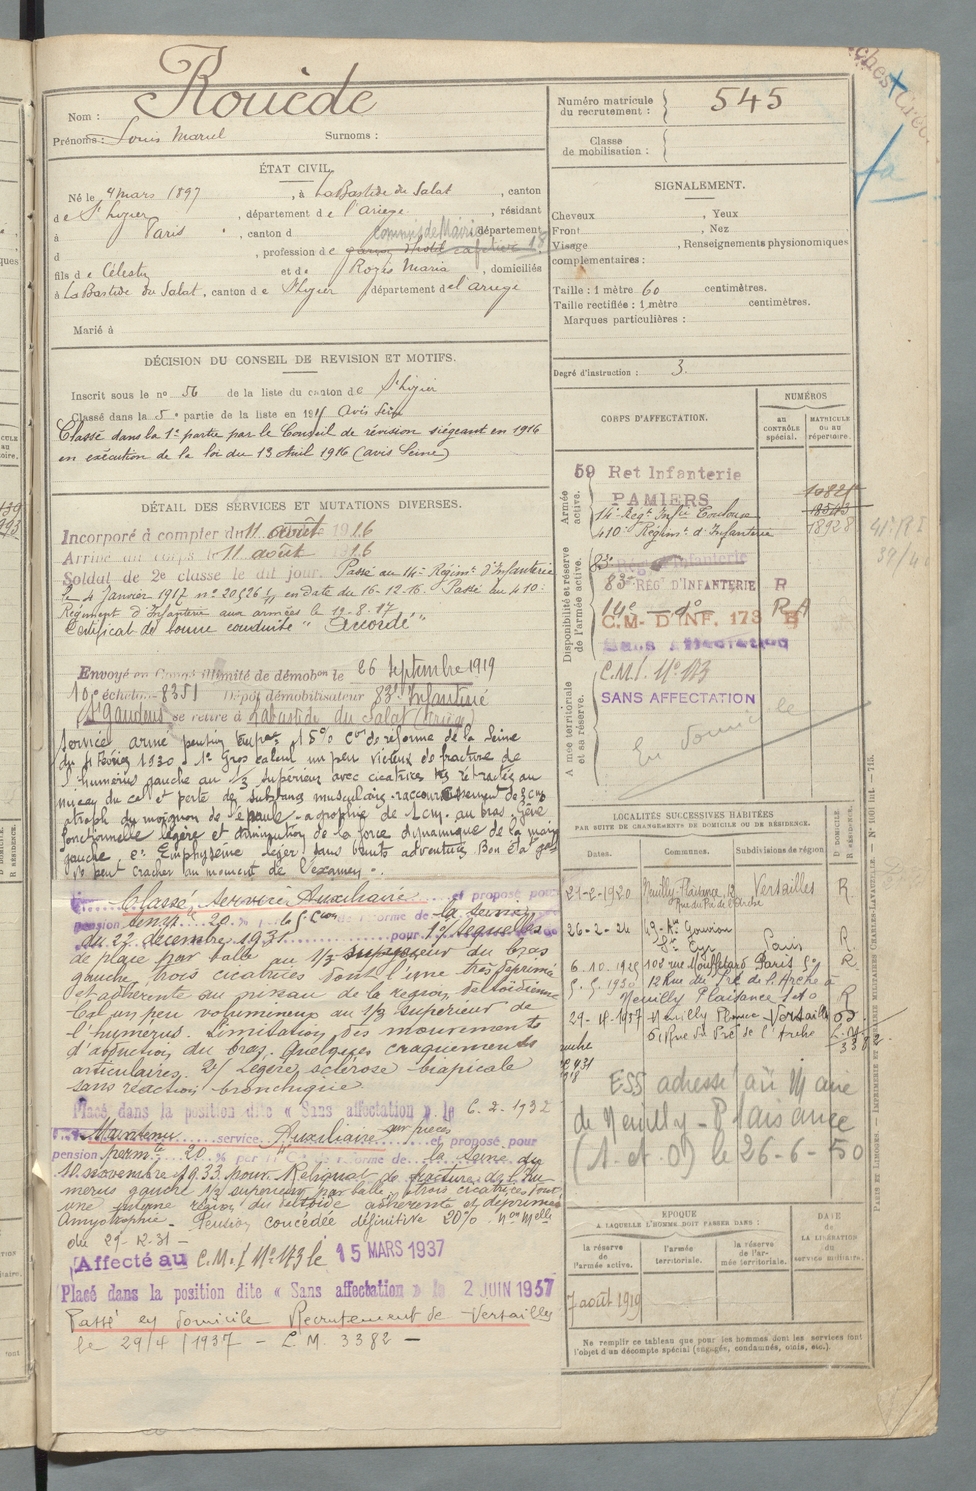 Rouède
Nom :
Prénoms : Louis Marcel Surnoms :
Numéro matricule du recrutement : 545
Classe de mobilisation :
ÉTAT CIVIL.
Né le 4 mars 1897, à LaBastide du Salat, canton
de St Lizier, département de l'ariege, résidant
à Paris, canton d département
d , profession de Commis de Mairie garçon d'hotel cafetier
fils de Célestin et de Rozès Maria, domiciliés
à LaBastide du Salat, canton de St Lizier département de l'ariege
Marié à
SIGNALEMENT.
Cheveux , Yeux
Front , Nez
Visage , Renseignements physionomiques
complémentaires :
Taille : 1 mètre 60 centimètres.
Taille rectifiée : 1 mètre centimètres.
Marques particulières :
Degré d'instruction : 3.
DÉCISION DU CONSEIL DE REVISION ET MOTIFS.
Inscrit sous le no 56 de la liste du canton de St Lizier
Classé dans la 5e partie de la liste en 191 avis Seine
Classé dans la 1e partie par le Conseil de révision siégeant en 1916
en exécution de la loi du 13 Avril 1916 (avis Seine)
DÉTAIL DES SERVICES ET MUTATIONS DIVERSES.
Incorporé à compter du 11 août 1916
Arrivé au corps le 11 août 1916
Soldat de 2e classe le dit jour. Passé au 14e Régimt d'Infanterie
le 4 Janvier 1917 no 20526 en date du 16-12-16. Passé au 410e
Régiment d'Infanterie aux armées le 19-8-17
Certificat de bonne conduite "Accordé"
Envoyé en Congé illimité de démobon le 26 Septembre 1919
10e échelon 8351 Dépôt démobilisateur 83e Infanterie
(St Gaudens) se retire à Labastide du Salat (Ariège)
Service armé pension tempre 15% Con de réforme de la Seine
du 4 Février 1930 1° Gros cal un peu vicieux de fracture de
l'humérus gauche au 1/3 supérieur avec cicatrices très rétractées au
niveau du cal et perte de substance musculaire - raccourcissement de 3 cm
atrophie du moignon de l'épaule - atrophie de 1 cm. au bras. Gêne
fonctionnelle légère et diminution de la force dynamique de la main
gauche. 2° Emphysème léger sans bruits adventices Bon état gal
Ne peut cracher au moment de l'examen.
Classé service Auxiliaire et proposé pour
pension temp. 20 % par la 5e Con de réforme de la Seine
du 22 décembre 1931 pour 1° séquelles
de plaie par balle au 1/3 supérieur du bras
gauche, trois cicatrices dont l'une très déprimée
et adhérente au niveau de la region deltoïdienne
Cal un peu volumineux au 1/3 supérieur de
l'humérus. Limitation des mouvements
d'abduction du bras. Quelques craquements
articulaires. 2/ Légère sclérose biapicale
sans réaction bronchique
Placé dans la position dite « Sans affectation » le 6.2.1932
Maintenu service Auxiliaire sur pièces et proposé pour
pension perm. 20 % par la Con de réforme de la Seine du
10 novembre 1933 pour Reliquat de fracture de l'hu-
mérus gauche 1/3 supérieur par balle, trois cicatrices dont
une région du deltoïde adhérente et déprimée
Amyotrophie - Pension concédée définitive 20%
du 29-12-31 -
Affecté au C.M.I No 173 le 15 MARS 1937
Placé dans la position dite « Sans affectation » le 2 JUIN 1937
Passé en domicile Recrutement de Versailles
le 29/4/1937 - L.M 3382 -
CORPS D'AFFECTATION.
NUMÉROS
AU CONTRÔLE SPÉCIAL.
MATRICULE OU AU RÉPERTOIRE.
Armée active.
59 Ret Infanterie
PAMIERS
14e Regt Infie Toulouse
410e Régimt d'Infanterie
18928
Disponibilité et réserve de l'armée active.
83e Rég Infanterie
83e RÉGt D'INFANTERIE R
C.M. D'INF. 173
Sans Affectation
Armée territoriale et sa réserve.
C.M.I. No 173
SANS AFFECTATION
En domicile
LOCALITÉS SUCCESSIVES HABITÉES
PAR SUITE DE CHANGEMENTS DE DOMICILE OU DE RÉSIDENCE.
Dates. Communes. Subdivisions de région
D DOMICILE
R RÉSIDENCE.
29-2-1920 Neuilly-Plaisance, 12 Rue du Pré de l'Arche Versailles R
26-2-24 Paris R
6.10.1925 108 rue Mouffetard Paris 5e R
5.5.1930 12 Rue du Pré de l'Arche à
Neuilly Plaisance S et O R
29-4-1937 Neuilly Plaisance Versailles D
6, Rue du Pré de l'Arche
3382
ESS adresse au Maire
de Neuilly-Plaisance
(S. et O) le 26-6-50
EPOQUE
A LAQUELLE L'HOMME DOIT PASSER DANS :
la réserve de l'armée active.
l'armée territoriale.
la réserve de l'armée territoriale.
DATE de LA LIBÉRATION du service militaire.
7 août 1919
Ne remplir ce tableau que pour les hommes dont les services font
l'objet d'un décompte spécial (engagés, condamnés, omis, etc.).
PARIS ET LIMOGES. — IMPRIMERIE ET LIBRAIRIE MILITAIRES CHARLES-LAVAUZELLE.